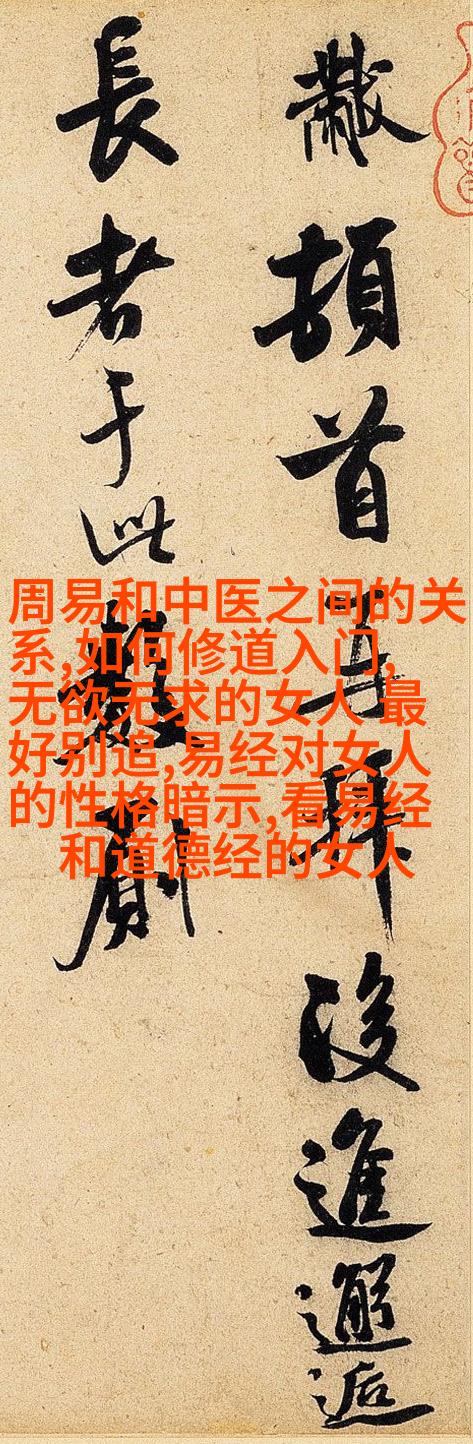 黻頓首再拜後進邂逅
長者于此數廁
周易和中医之间的关
系,如何修道入门,
无欲无求的女人 最
好别追,易经对女人
的性格暗示,看易经
和道德经的女人